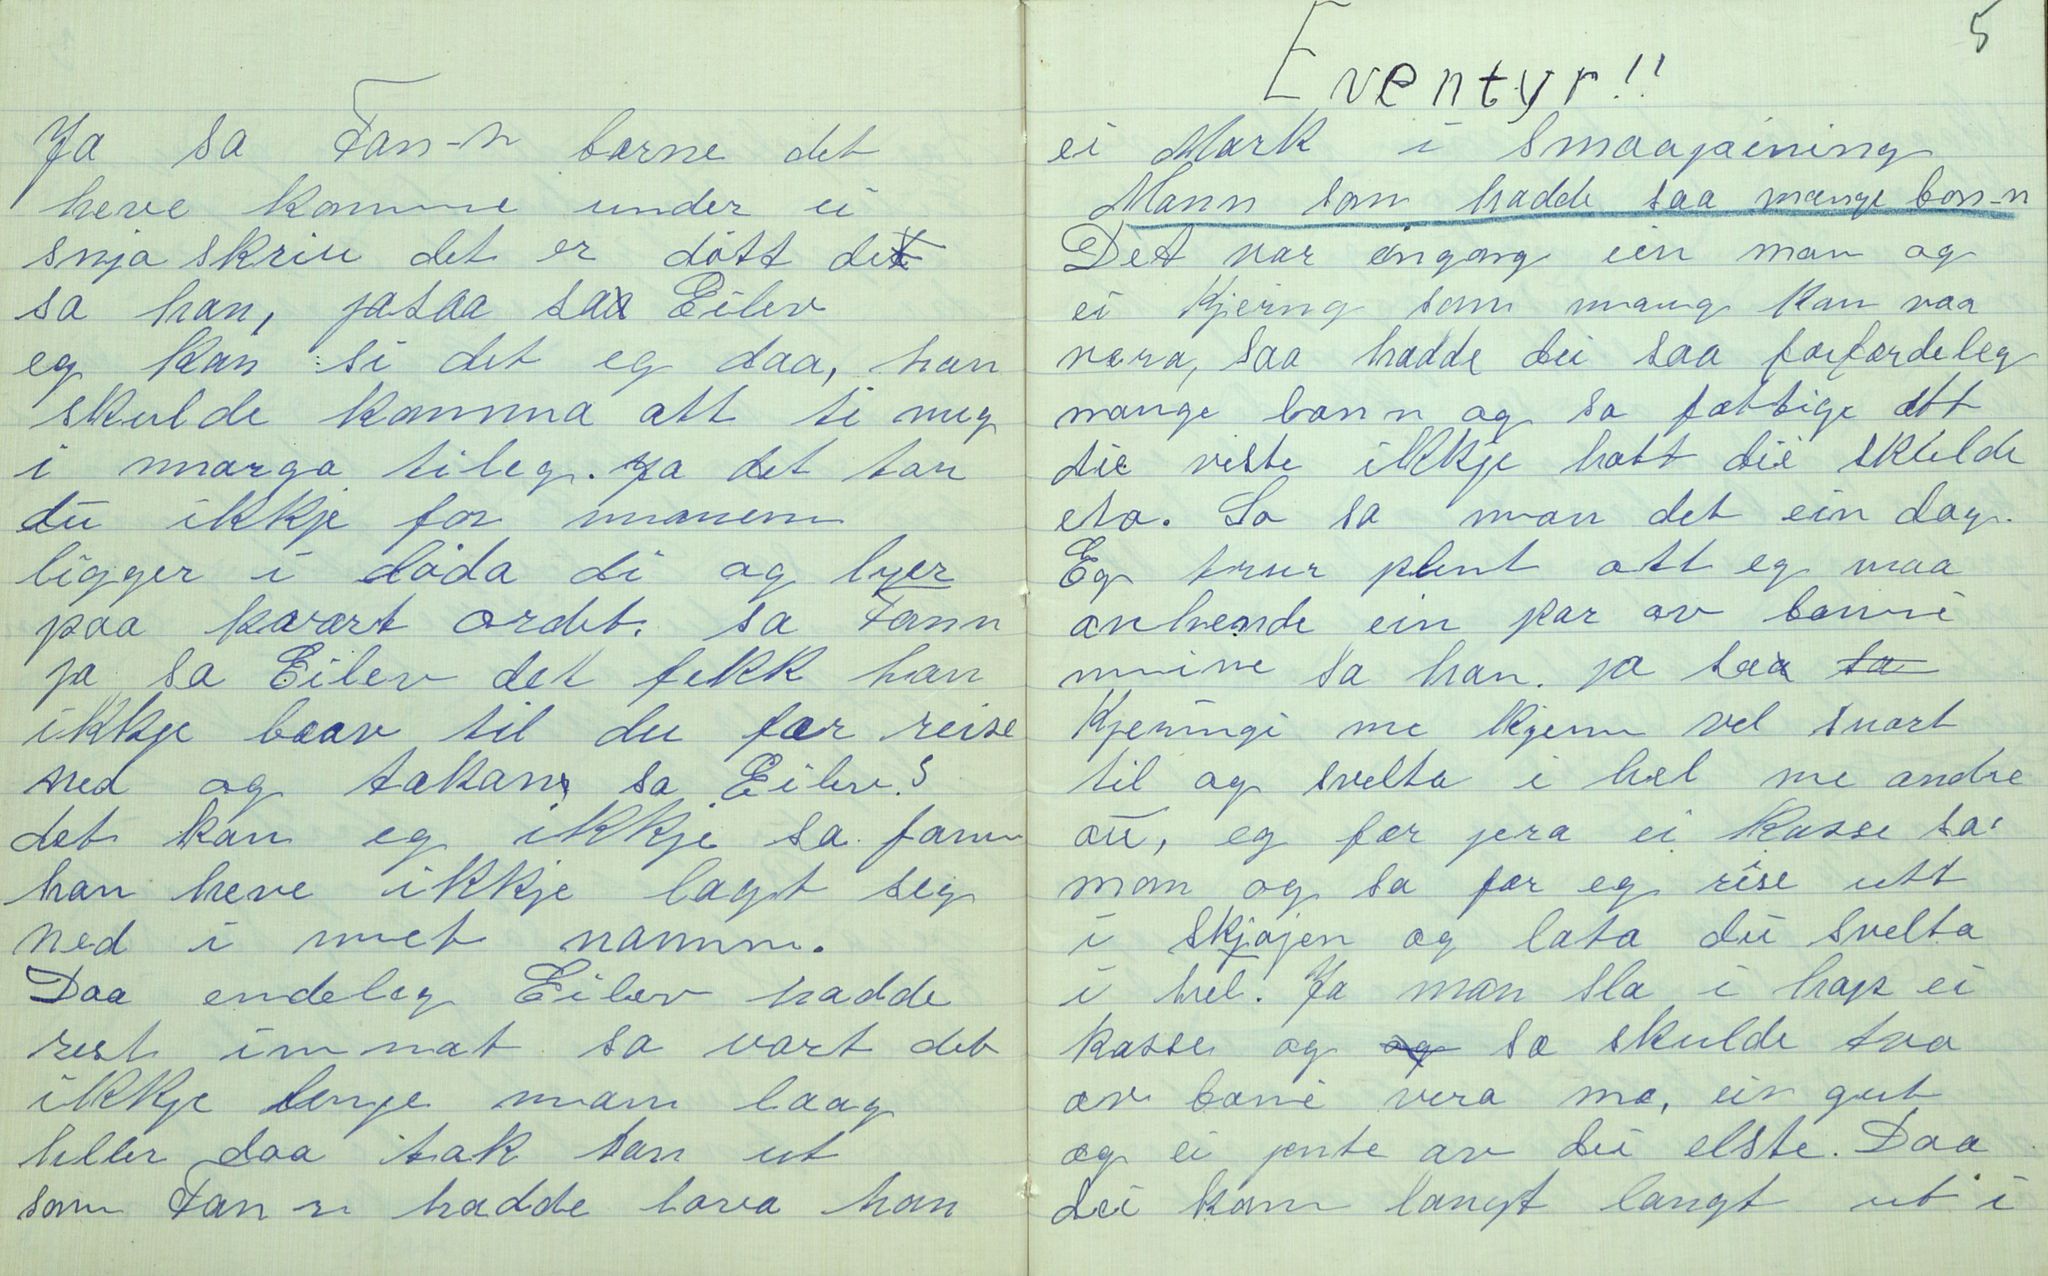 Ja sa Fan-n barne det
heve komme under ei
snja skriu det er dött det
sa han, jasaa saa Eilev
eg kan si det eg daa, han
skulde komma att ti meg
i marga tileg. ja det tar
du ikkje for manen
ligger i döda di og lyer
paa kvart ordet. sa Fann
ja sa Eilev det fekk han
ikkje baar til du fær reise
ned og takan sa Eilev.
det kan eg ikkje sa fann
han heve ikkje lagt seg
ned i met namn.
Daa endeleg Eilev hadde
rest imnat sa vart det
ikkje lenge mann laag
heller daa tok han ut
som Fan n hadde lova han
5
Eventyr!!
ei Mark i Smaapeining
Mann som hadde saa mange bon-n
Det var eingong ein man og
ei Kjering som mang kan vaa
væra, saa hadde dei saa forfærdeleg
mange bonn og so fattige att
die viste ikkje hatt die skulde
eta. So sa man det ein dag.
Eg trur plent att eg maa
avhende ein par av bonni
mine sa han. ja saa sa
Kjeringi me kjem vel snart
til og svelta i hel me andre
ou, eg fær jera ei kasse sa
man og sa fær eg reise utt
i skjojen og lata dii svelta
i hel. Ja man sla i hop ei
kasse og og sa skulde tva
av boni vera me, ein gut
og ei jente av dei elste. Daa
dei kom langt langt ut i